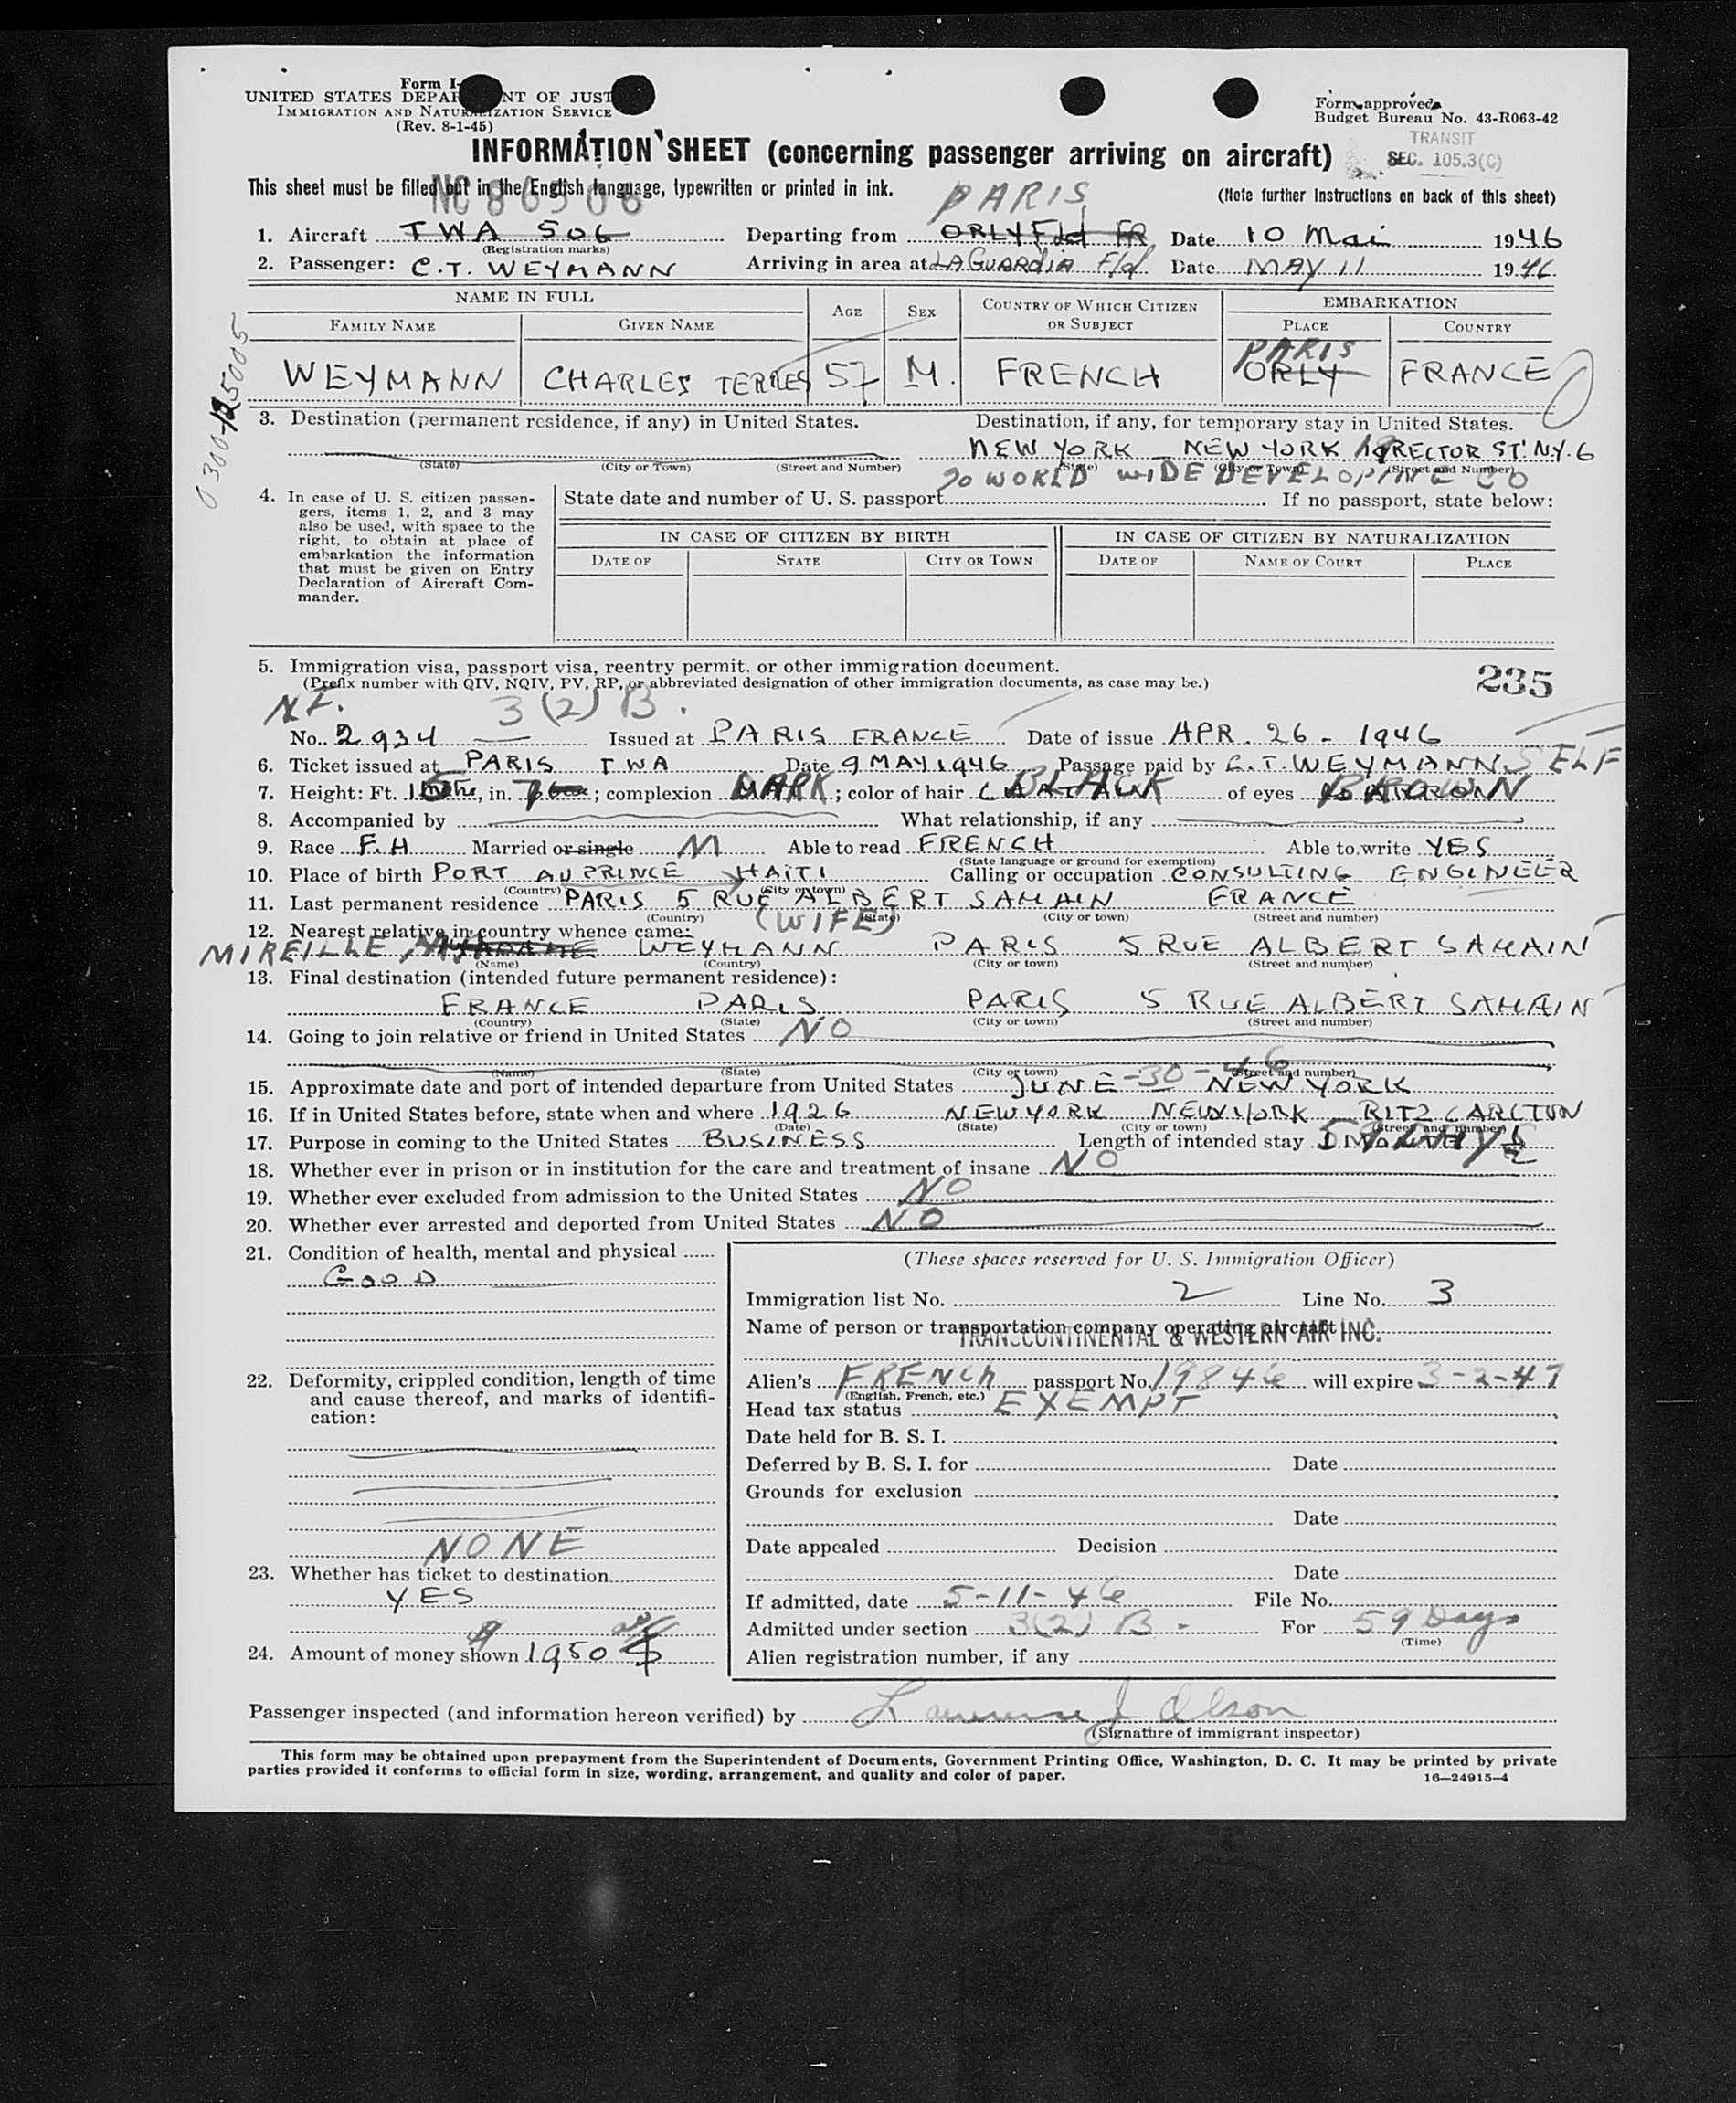 Form I-
UNITED STATES DEPAR NT OF JUST
IMMIGRATION AND NATURALIZATION SERVICE
(Rev. 8-1-45)
Form approved
Budget Bureau No. 43-R063-42
TRANSIT
SEC. 105.3(C)
INFORMATION SHEET (concerning passenger arriving on aircraft)
This sheet must be filled out in the English language, typewritten or printed in ink.
(Note further instructions on back of this sheet)
PARIS
1. Aircraft TWA 506 Departing from ORLY Fld FR Date 10 Mai 1946
(Registration marks)
2. Passenger: C.T. WEYMANN Arriving in area at LAGUARDIA Fld Date MAY 11 1946
NAME IN FULL AGE SEX COUNTRY OF WHICH CITIZEN OR SUBJECT EMBARKATION
FAMILY NAME GIVEN NAME PLACE COUNTRY
PARIS
WEYMANN CHARLES TERRES 57 M. FRENCH ORLY FRANCE
3. Destination (permanent residence, if any) in United States. Destination, if any, for temporary stay in United States.
NEW YORK NEW YORK 19 RECTOR ST. N.Y. 6
(State) (City or Town) (Street and Number) (State) (City or Town) (Street and Number)
WORLD WIDE DEVELOPING CO
4. In case of U. S. citizen passengers, items 1, 2, and 3 may also be used, with space to the right, to obtain at place of embarkation the information that must be given on Entry Declaration of Aircraft Commander.
State date and number of U. S. passport If no passport, state below:
IN CASE OF CITIZEN BY BIRTH IN CASE OF CITIZEN BY NATURALIZATION
DATE OF STATE CITY OR TOWN DATE OF NAME OF COURT PLACE
5. Immigration visa, passport visa, reentry permit, or other immigration document.
235
(Prefix number with QIV, NQIV, PV, RP, or abbreviated designation of other immigration documents, as case may be.)
3 (2) B.
No. 2934 Issued at PARIS FRANCE Date of issue APR. 26 - 1946
6. Ticket issued at PARIS TWA Date 9 MAY 1946 Passage paid by C.T. WEYMANN SELF
7. Height: Ft. 5, in. 7; complexion DARK; color of hair BLACK of eyes BROWN
8. Accompanied by What relationship, if any
9. Race F.H Married or single M Able to read FRENCH Able to write YES
(State language or ground for exemption)
10. Place of birth PORT AU PRINCE HAITI Calling or occupation CONSULTING ENGINEER
(Country) (City or town)
11. Last permanent residence PARIS 5 RUE ALBERT SAMAIN FRANCE
(Country) (State) (City or town) (Street and number)
(WIFE)
12. Nearest relative in country whence came:
MIREILLE WEYMANN PARIS 5 RUE ALBERT SAMAIN
(Name) (Country) (City or town) (Street and number)
13. Final destination (intended future permanent residence):
FRANCE PARIS PARIS 5 RUE ALBERT SAMAIN
(Country) (State) (City or town) (Street and number)
14. Going to join relative or friend in United States NO
(Name) (State) (City or town) (Street and number)
15. Approximate date and port of intended departure from United States JUNE -30-46 NEW YORK
16. If in United States before, state when and where 1926 NEW YORK NEW YORK RITZ CARLTON
(Date) (State) (City or town) (Street and number)
17. Purpose in coming to the United States BUSINESS Length of intended stay 59 DAYS
18. Whether ever in prison or in institution for the care and treatment of insane NO
19. Whether ever excluded from admission to the United States NO
20. Whether ever arrested and deported from United States NO
21. Condition of health, mental and physical
GOOD
22. Deformity, crippled condition, length of time and cause thereof, and marks of identification:
NONE
23. Whether has ticket to destination
YES
24. Amount of money shown 1950 $
(These spaces reserved for U. S. Immigration Officer)
Immigration list No. 2 Line No. 3
Name of person or transportation company operating aircraft
TRANSCONTINENTAL & WESTERN AIR INC.
Alien's FRENCH passport No. 19846 will expire 3-2-47
(English, French, etc.)
Head tax status EXEMPT
Date held for B. S. I.
Deferred by B. S. I. for Date
Grounds for exclusion
Date
Date appealed Decision
Date
If admitted, date 5-11-46 File No.
Admitted under section 3(2) B - For 59 Days
(Time)
Alien registration number, if any
Passenger inspected (and information hereon verified) by Lawrence J Olson
(Signature of immigrant inspector)
This form may be obtained upon prepayment from the Superintendent of Documents, Government Printing Office, Washington, D. C. It may be printed by private
parties provided it conforms to official form in size, wording, arrangement, and quality and color of paper. 16—24915-4